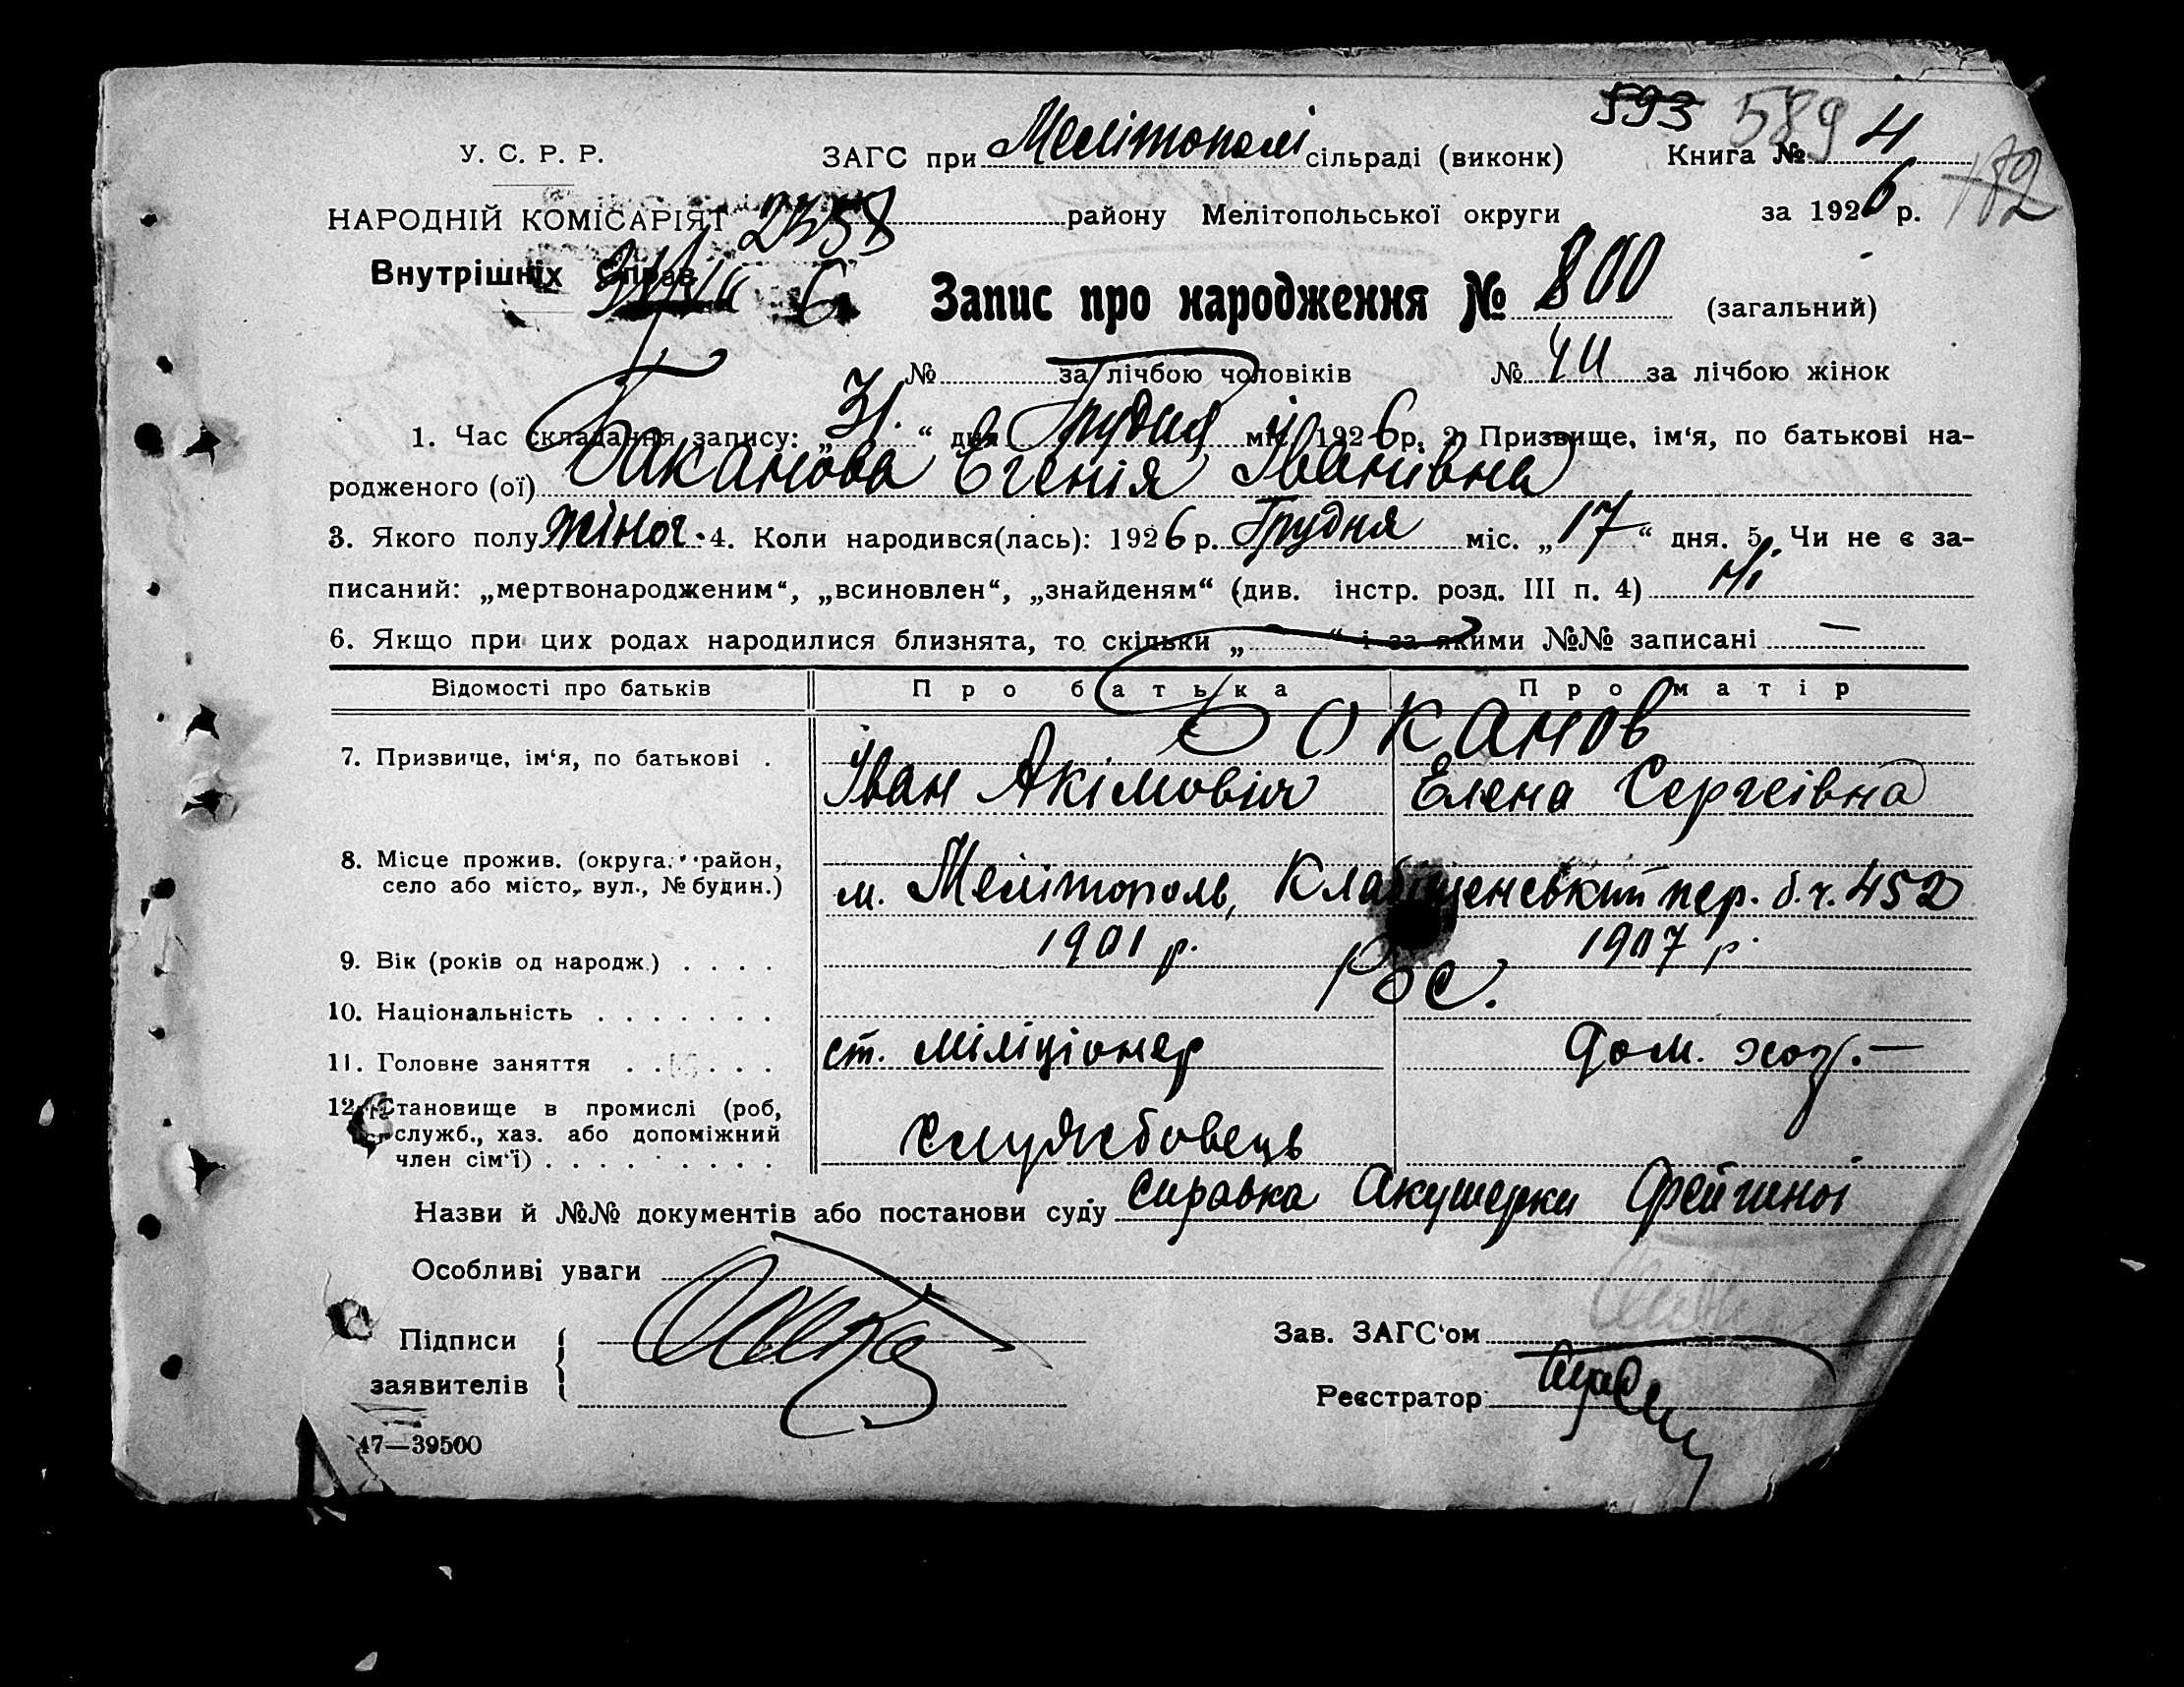 593 589 4
У. С. Р. Р. ЗАГС при Мелітополі сільраді (виконк) Книга №
182
НАРОДНІЙ КОМІСАРІЯТ 2358 району Мелітопольської округи за 1926 р.
Внутрішніх Справ 6
Запис про народження № 800 (загальний)
№ за лічбою чоловіків № за лічбою жінок
1. Час складання запису: „31“ дня Грудня міс. 1926 р. 2. Призвище, ім‘я, по батькові на-
родженого (ої) Баканова Євгенія Іванівна
3. Якого полу жіноч. 4. Коли народився(лась): 1926 р. Грудня міс. „17“ дня. 5. Чи не є за-
писаний: „мертвонародженим“, „всиновлен“, „знайденям“ (див. інстр. розд. III п. 4) Ні
6. Якщо при цих родах народилися близнята, то скільки „ “ і за якими №№ записані —
Відомості про батьків Про батька Про матір
Боканов
7. Призвище, ім‘я, по батькові . Іван Акімовіч Елена Сергеівна
8. Місце прожив. (округа. район,
село або місто, вул., № будин.) м. Мелітополь, пер. б. ч. 452
9. Вік (років од народж.) . . . . 1901 р. 1907 р.
10. Національність . . . . . . . Рос.
11. Головне заняття . . . . . ст. міліціонер дом. хоз. —
12. Становище в промислі (роб,
служб., хаз. або допоміжний
член сім‘ї) . . . . . . . . . службовець
Назви й №№ документів або постанови суду справка Акушерки Фейгиної
Особливі уваги
Підписи Зав. ЗАГС‘ом
заявителів Реєстратор
47—39500